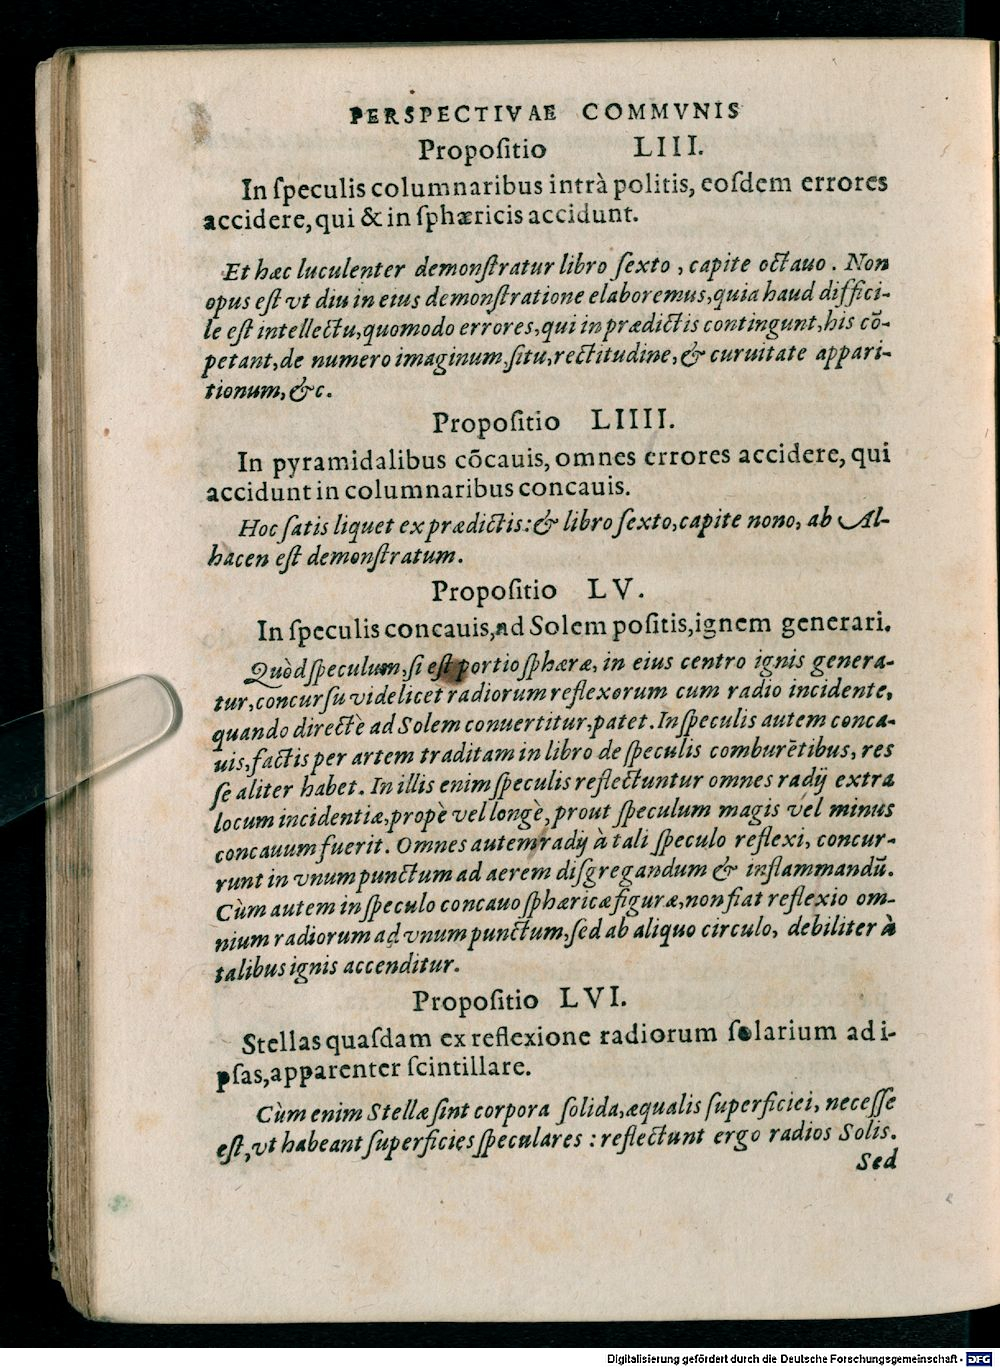 PERSPECTIVAE COMMVNIS
Propoſitio LIII.
In ſpeculis columnaribus intrà politis, eoſdem errores
accidere, qui & in ſphæricis accidunt.
Et hæc luculenter demonſtratur libro ſexto, capite octauo. Non
opus eſt vt diu in eius demonſtratione elaboremus, quia haud diffici-
le eſt intellectu, quomodo errores, qui in prædictis contingunt, his cō-
petant, de numero imaginum, ſitu, rectitudine, & curuitate appari-
tionum, &c.
Propoſitio LIIII.
In pyramidalibus cōcauis, omnes errores accidere, qui
accidunt in columnaribus concauis.
Hoc ſatis liquet ex prædictis: & libro ſexto, capite nono, ab Al-
hacen eſt demonſtratum.
Propoſitio LV.
In ſpeculis concauis, ad Solem poſitis, ignem generari.
Quòd ſpeculum, ſi eſt portio ſphæræ, in eius centro ignis genera-
tur, concurſu videlicet radiorum reflexorum cum radio incidente,
quando directè ad Solem conuertitur, patet. In ſpeculis autem conca-
uis, factis per artem traditam in libro de ſpeculis comburētibus, res
ſe aliter habet. In illis enim ſpeculis reflectuntur omnes radij extra
locum incidentiæ, propè vel longè, prout ſpeculum magis vel minus
concauum fuerit. Omnes autem radij à tali ſpeculo reflexi, concur-
runt in vnum punctum ad aerem diſgregandum & inflammandū.
Cùm autem in ſpeculo concauo ſphæricæ figuræ, non fiat reflexio om-
nium radiorum ad vnum punctum, ſed ab aliquo circulo, debiliter à
talibus ignis accenditur.
Propoſitio LVI.
Stellas quaſdam ex reflexione radiorum ſolarium ad i-
pſas, apparenter ſcintillare.
Cùm enim Stellæ ſint corpora ſolida, æqualis ſuperficiei, neceſſe
eſt, vt habeant ſuperficies ſpeculares: reflectunt ergo radios Solis.
Sed
Digitalisierung gefördert durch die Deutsche Forschungsgemeinschaft - DFG